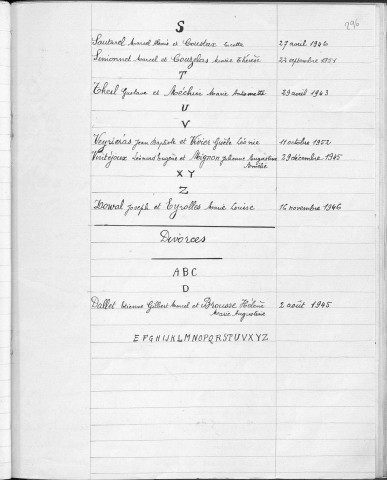 296
S
Sauterel Marcel René et Coustaux Lucette 27 avril 1946
Simionnet Marcel et Couzelas Marie Thérèse 22 septembre 1951
T
Theil Gustave et Méchin Marie Antoinette 29 avril 1943
U
V
Veyriéras Jean Baptiste et Vivier Gisèle Léonie 11 octobre 1952
Vertéjoux Léonard Eugène et Meignan Jeanne Augustine 29 décembre 1945
Amélie
X Y
Z
Joseph et Eyrolles Marie Louise 16 novembre 1946
Divorces
A B C
D
Dallet Etienne Gilbert Marcel et Brousse Hélène 2 août 1945
Marie Augustine
E F G H I J K L M N O P Q R S T U V X Y Z